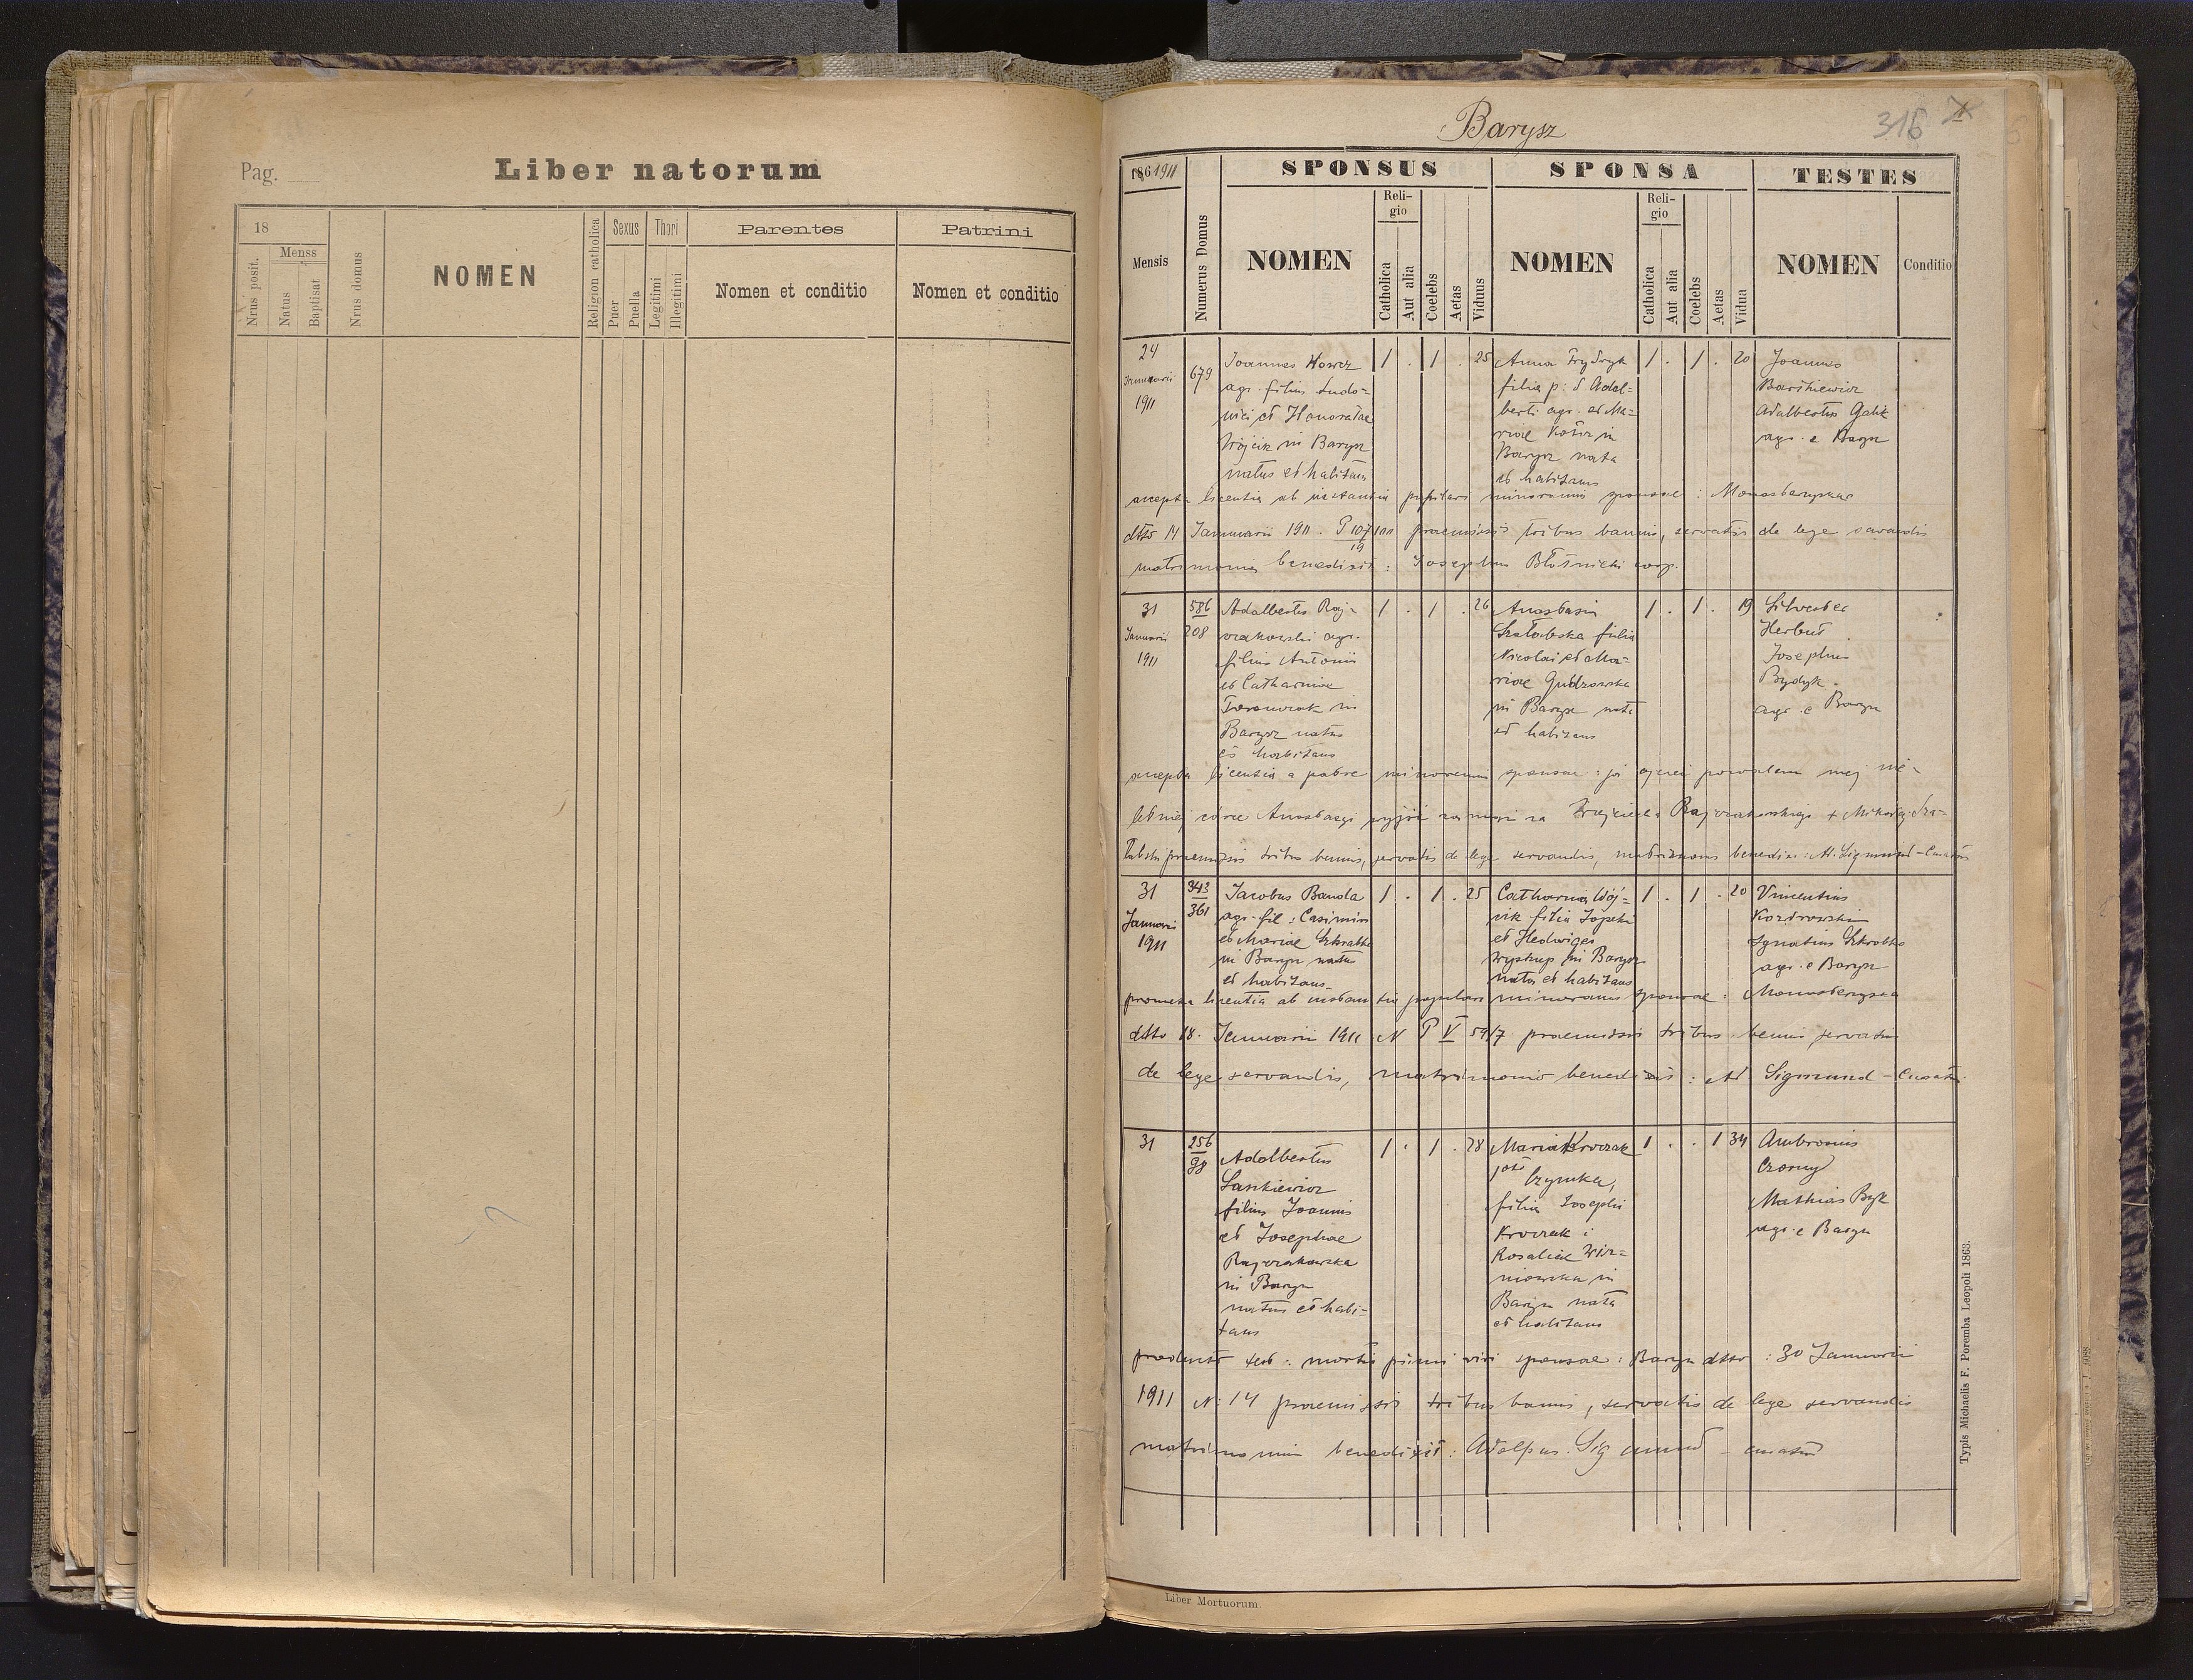 Pag.
Liber natorum
18
Nrus posit.
Menss
Natus
Baptisat
Nrus domus
NOMEN
Religion catholica
Sexus
Puer
Puella
Thori
Legitimi
Illegitimi
Parentes
Nomen et conditio
Patrini
Nomen et conditio
Barysz
316
1861911
SPONSUS
SPONSA
TESTES
Mensis
Numerus Domus
NOMEN
Reli-
gio
Catholica
Aut alia
Coelebs
Aetas
Viduus
NOMEN
Reli-
gio
Catholica
Aut alia
Coelebs
Aetas
Vidua
NOMEN
Conditio
24
Januarii
1911
679
Joannes Howcz
agr. filius Ludo-
vici et Honoratae
Wójcik in Barysz
natus et habitans
1 . 1 . 25
Anna Frydryk
filia p: d Adal-
berti agr. et Ma-
riae in
Barysz nata
et habitans
1 . 1 . 20
Joannes
Barskiewicz
Adalbertus Galik
agr. e Barysz
accepta licentia ab instantia pupilari minorennis sponsae : Monasterzyskae
dtto 14 Januarii 1911 . P 107/11 praemissis tribus bannis, servatis de lege servandis
19
matrimonium benedixit : Josephus Błotnicki coop.
31
Januarii
1911
586
208
Adalbertus Raj-
czakowski agr.
filius Antonii
et Catharinae
in
Barysz natus
et habitans
1 . 1 . 26
Anastasia
Szałabska filia
Nicolai et Ma-
riae Gudzowska
in Barysz nata
et habitans
1 . 1 . 19
Silvester
Herbut
Josephus
Bydyk
agr. e Barysz
accepta licentia a patre minorennis sponsae : ja ojciec pozwalam mej nie-
letniej córce Anastazyi wyjść za mąż za Wojciecha Rajczakowskiego + Mikołaj Sza-
łabski praemissis tribus bannis, servatis de lege servandis, matrimonium benedixi : A. Sigmund - Curatus
31
Januarii
1911
343
361
Jacobus Banda
agr. fil : Casimiri
et Mariae Szkrabka
in Barysz natus
et habitans
1 . 1 . 25
Catharina Wój-
cik filia Josephi
et Hedwiges
Wyskup in Barysz
nata et habitans
1 . 1 . 20
Vincentius
Kozdrowski
Ignatius Szkrobko
agr. e Barysz
licentia ab instantia pupilari minorennis sponsae : Monasterzyska
dtto 18. Januarii 1911 N P V 59/7 praemissis tribus bannis servatis
de lege servandis, matrimonio benedixit : Ad Sigmund - Curatus
31
256
98
Adalbertus
Laszkiewicz
filius Joannis
et Josephae
Rajczakowska
in Barysz
natus et habi-
tans
1 . 1 . 28
Maria Krvczak
Czymka,
filia Josephi
Krvczak i
Rosaliae Wiz-
niowska in
Barysz nata
et habitans
1 . . 1 34
Ambrosius
Czorny
Mathias Byk
agr. e Barysz
producto test : mortis primi viri sponsae : Barysz dtto : 30 Januarii
1911 N: 14 praemissis tribus bannis, servatis de lege servandis
matrimonium benedixit : Adolpus Sigmund - curatus
Typis Michaelis F. Poremba Leopoli 1863.
Liber Mortuorum.